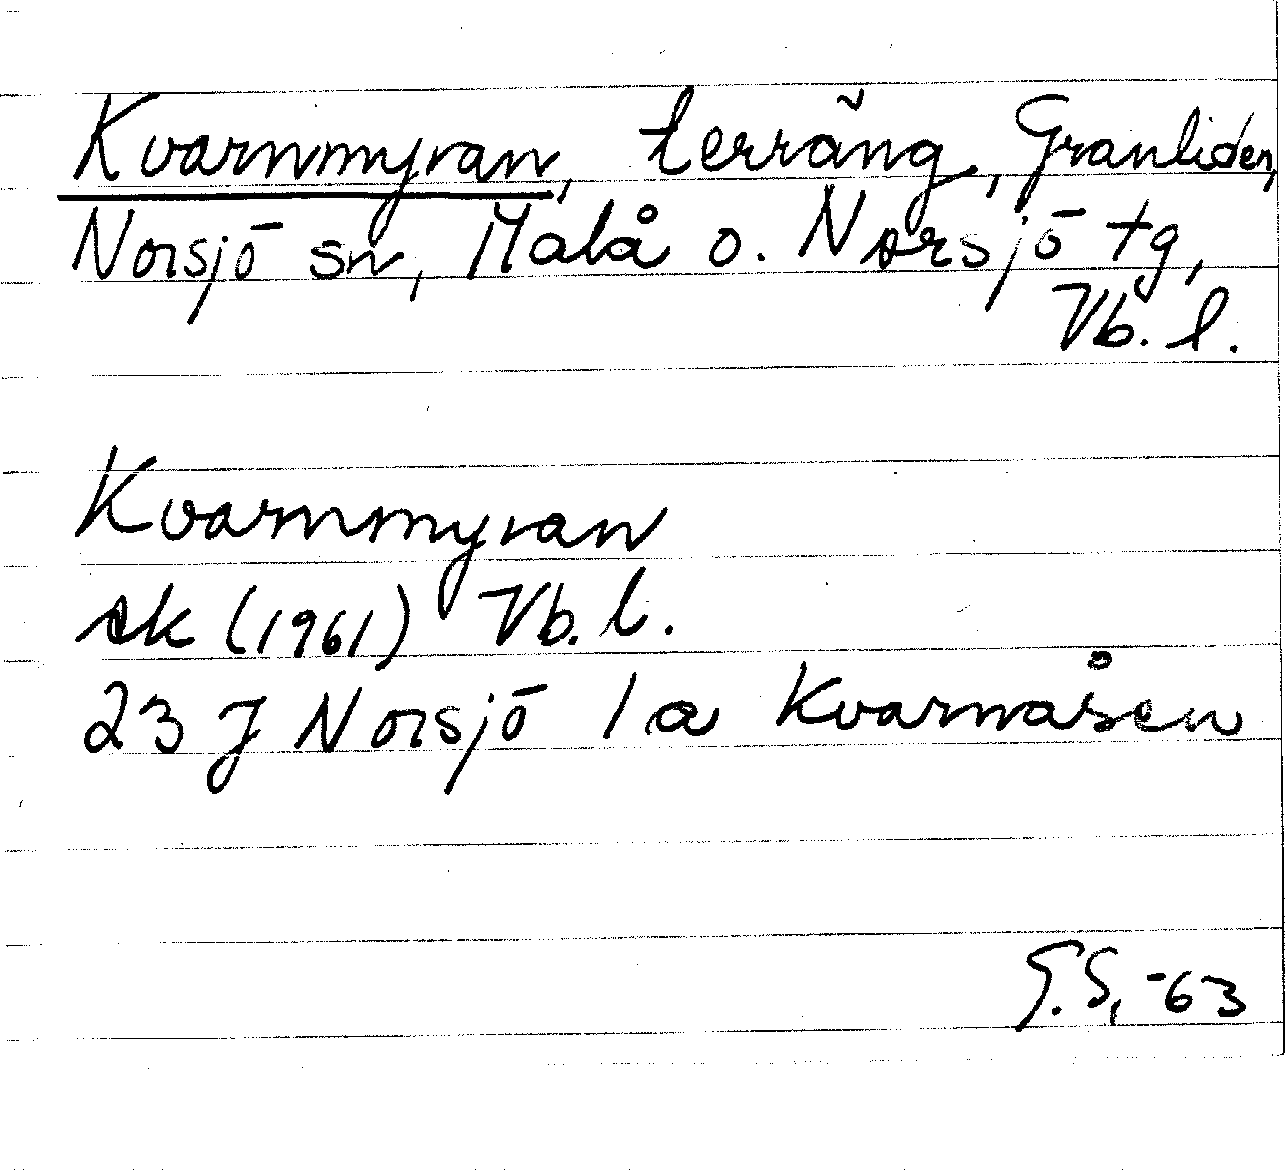 Kvarnmyran, terräng, Granliden,
Norsjö sn, Malå o. Norsjö tg,
Vb. l.
Kvarnmyran
ek (1961) Vb. l.
23 J Norsjö 1 a Kvarnåsen
G.S, -63